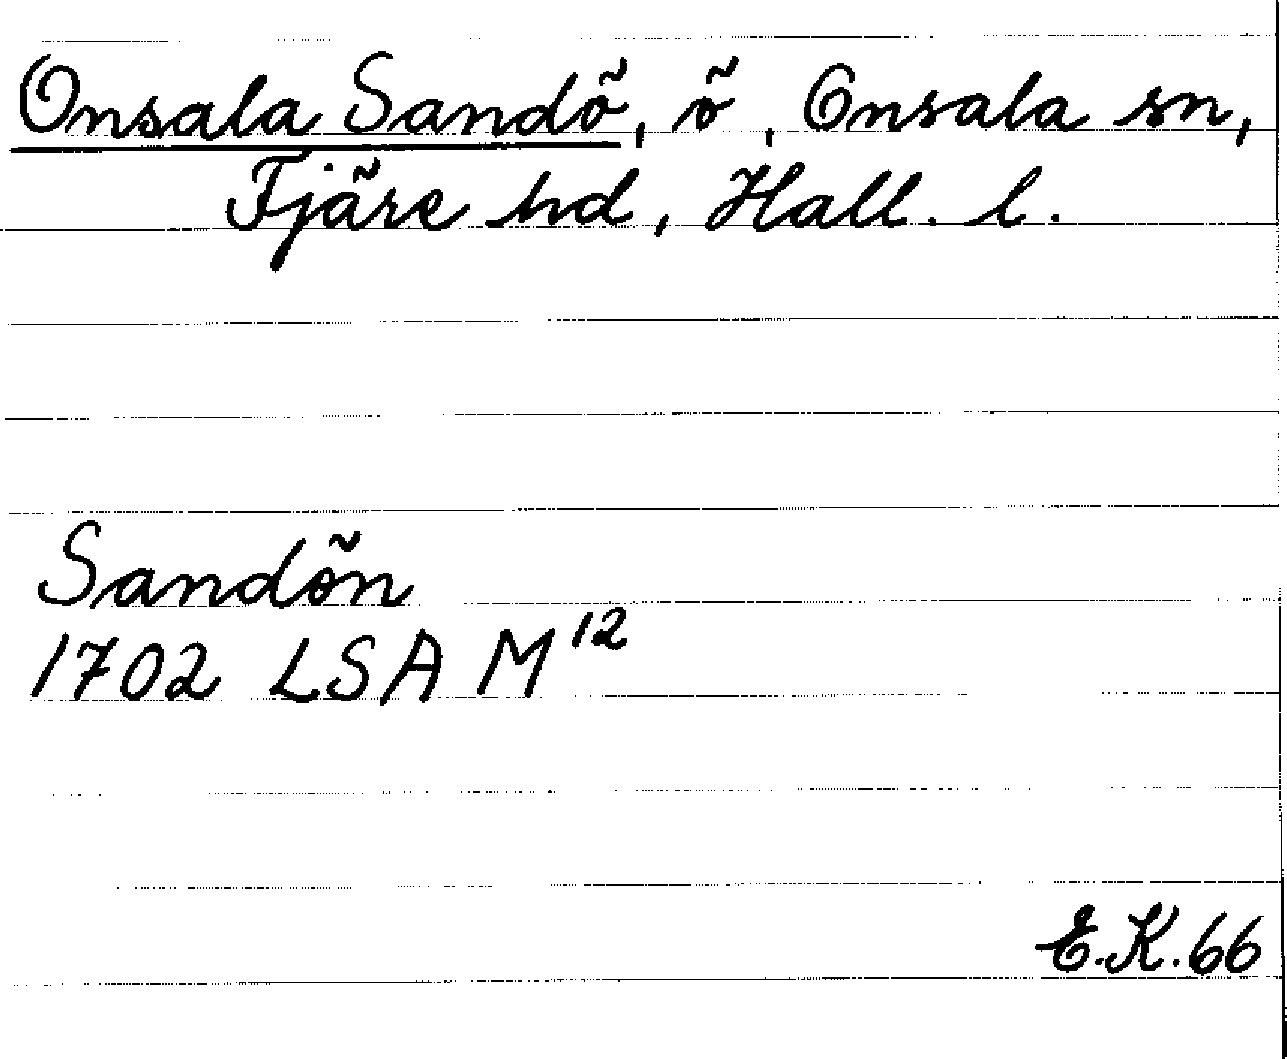 Onsala Sandö, ö, Onsala sn,
Fjäre hd, Hall. l.
Sandön
1702 LSA M¹²
E.K.66